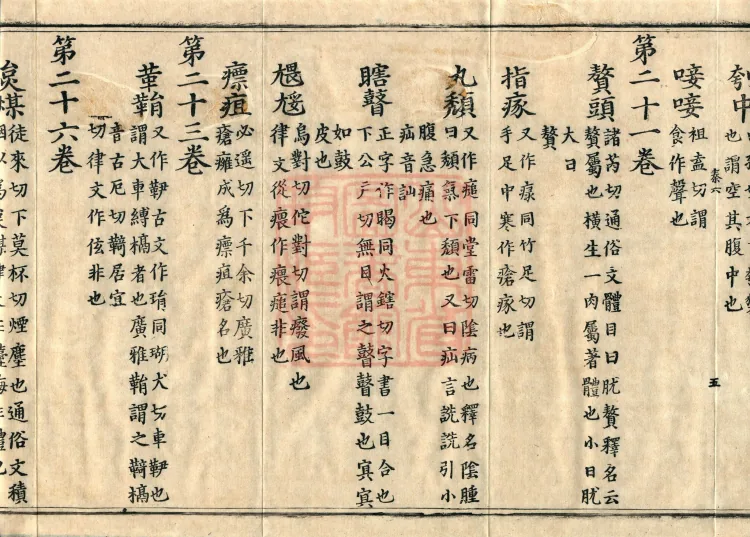 夸中
也謂空其腹中也
唼唼
祖盍切謂
食作聲也
第二十一卷
贅頭
諸芮切通俗文體目曰肬贅釋名云
贅屬也橫生一肉屬著體也小曰肬
大曰
贅
指瘃
又作瘃同竹足切謂
手足中寒作瘡瘃也
丸頹
又作㿗同堂雷切陰病也釋名陰腫
曰頹氣下頹也又曰疝言詵詵引小
腹急痛也
疝音訕
瞎瞽
正字作暍同火鎋切字書一目合也
下公戶切無目謂之瞽瞽鼓也𡨋𡨋
如鼓
皮也
烏對切佗對切謂癈風也
律文從㾯作㾯㿗非也
瘭疽
必遙切下千余切廣雅
瘡癰成爲瘭疽瘡名也
第二十三卷
又作䩛古文作㺿同瑚犬切車䩛也
謂大車縛槅者也廣雅鞙謂之䩭槅
音古厄切䩭居宜
切律文作伭非也
第二十六卷
炱煤
徒來切下莫杯切煙塵也通俗文積
五